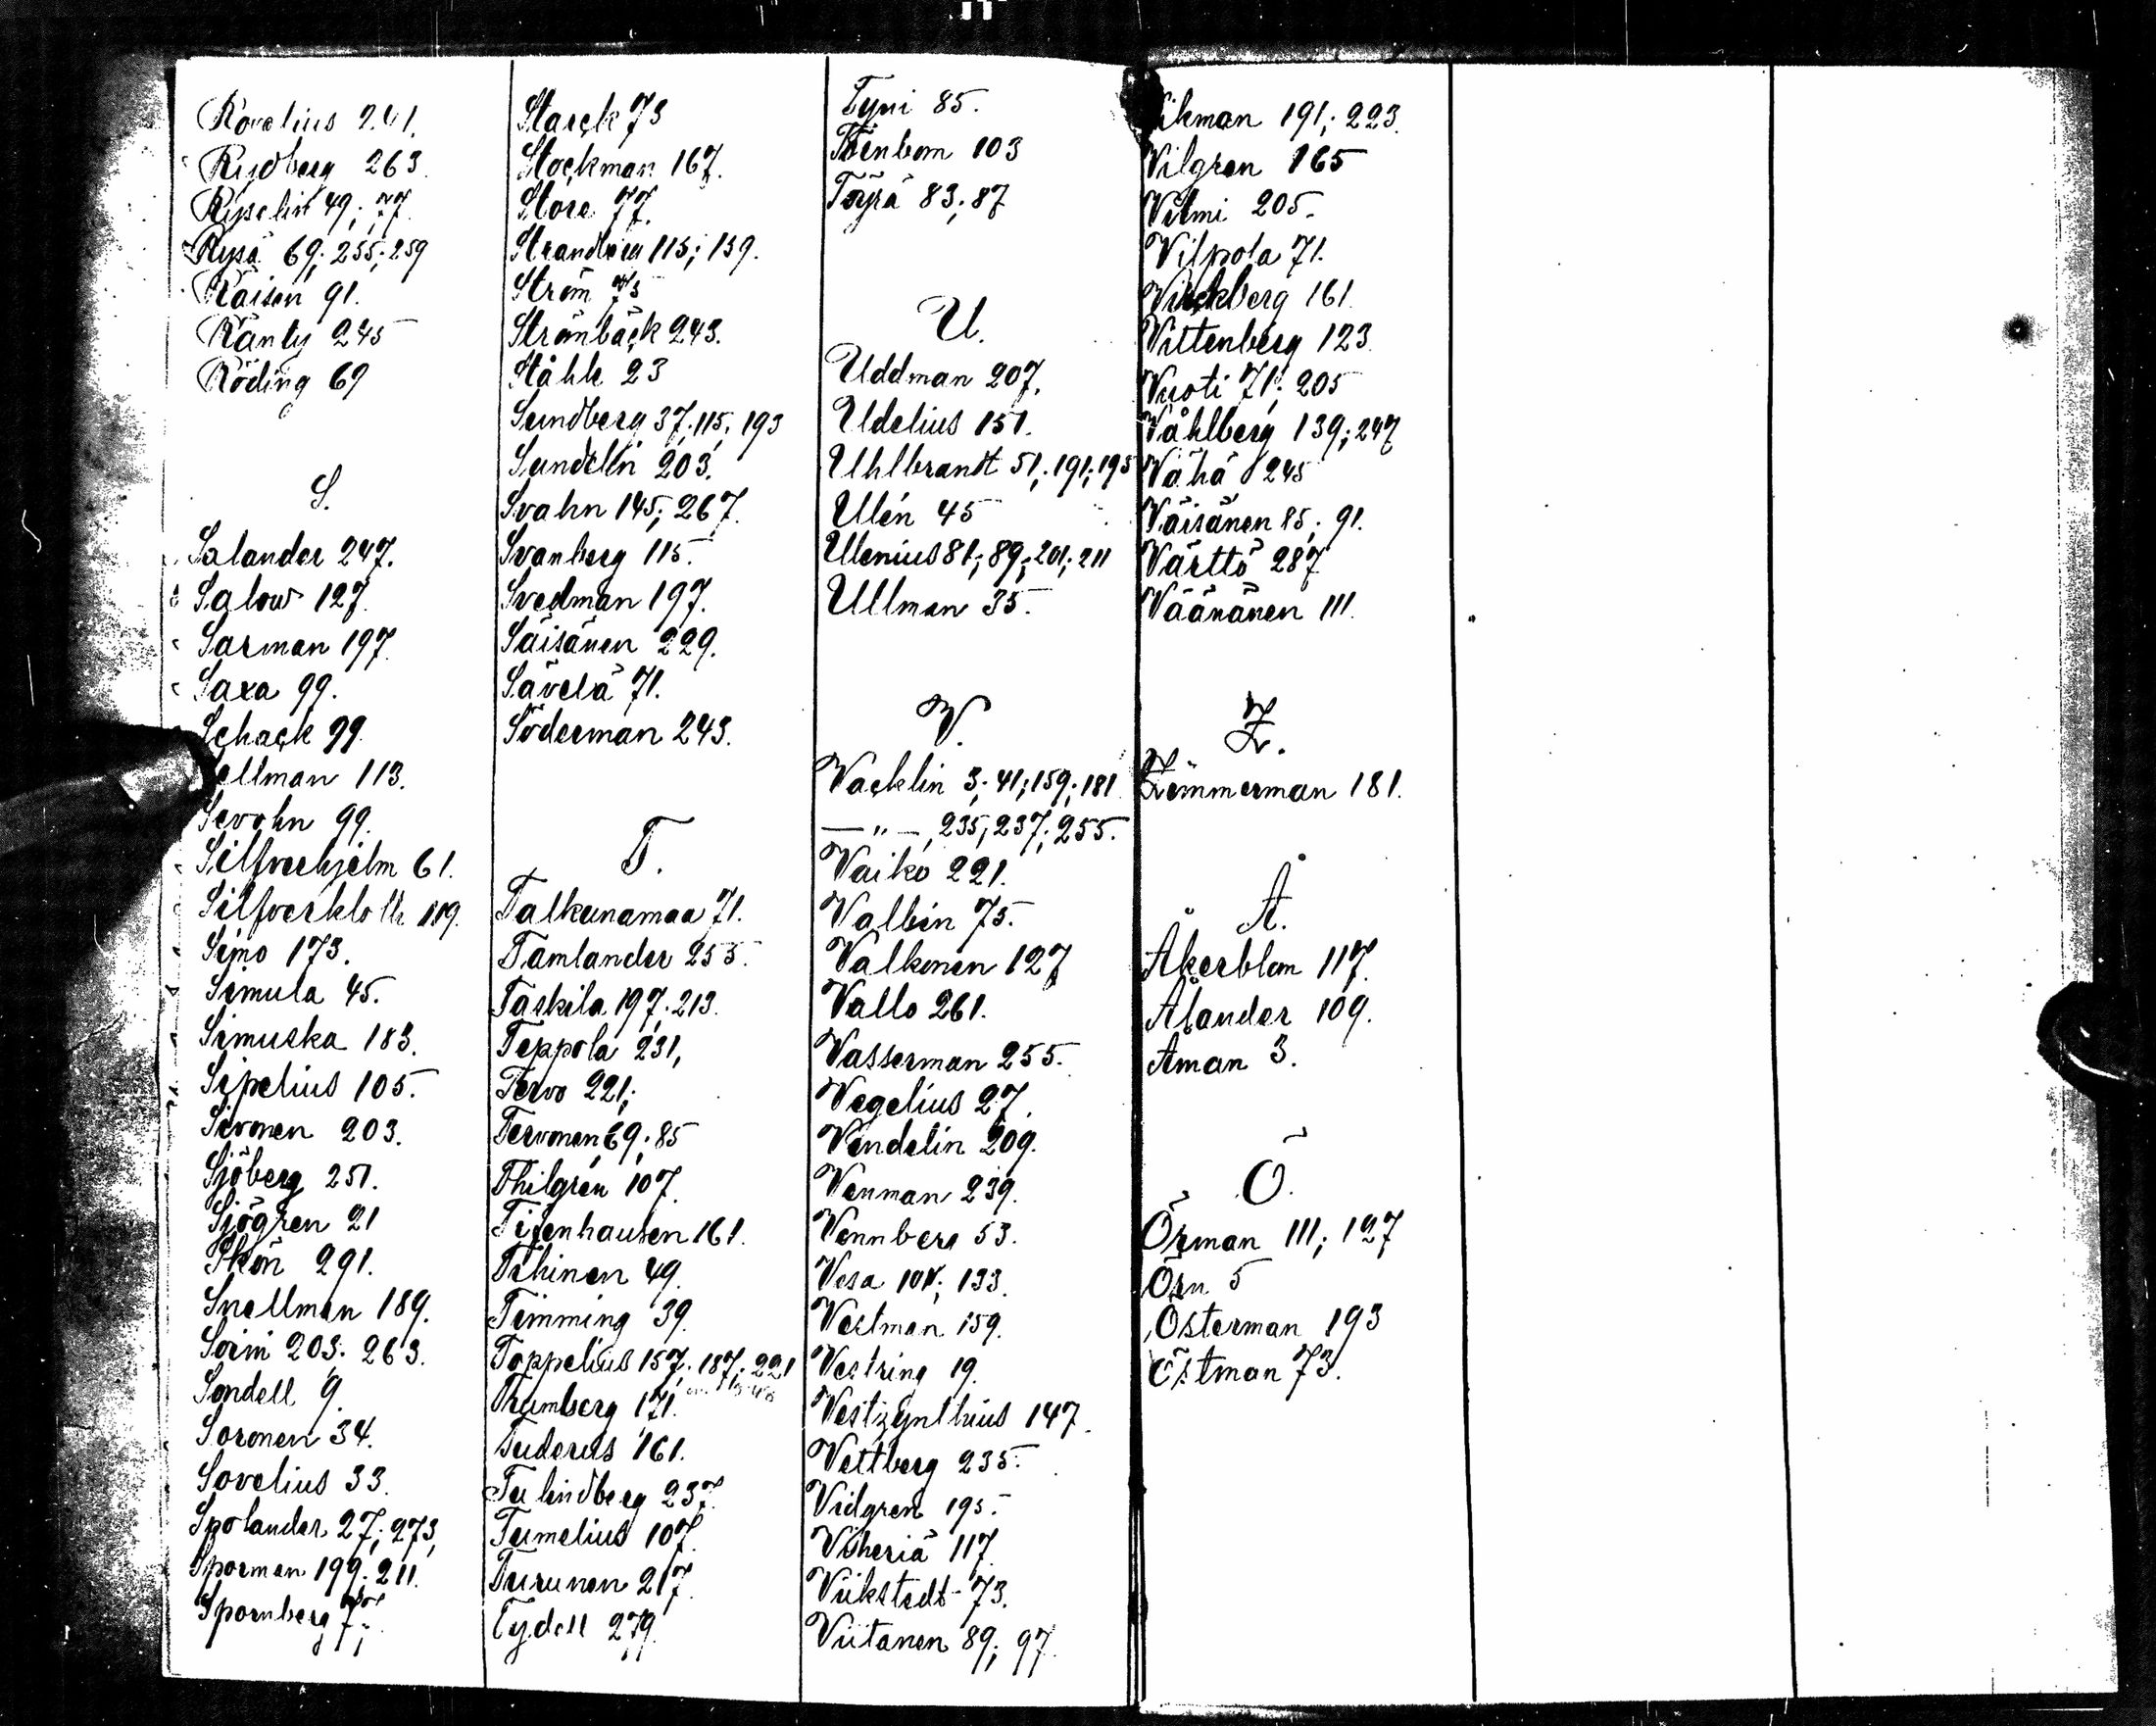 Rovelius 241.
Rydberg 263.
Ryselin 49; 77.
Rysä 69; 255; 259
Räisen 91.
Ränty 245
Röding 69
S.
Salander 247.
Salow 127.
Sarman 197.
Saxa 99.
Schack 99.
ellman 113.
Sevohn 99.
Silfverhjelm 61.
Silfverkloth 119.
Simo 173.
Simula 45.
Simuska 183.
Sipelius 105.
Sivonen 203.
Sjöberg 251.
Sjögren 21
Skön 291.
Snellman 189.
Soini 203; 263.
Sondell 9.
Soronen 34.
Sovelius 33.
Spolander 27; 273,
Sporman 199; 211.
Spornberg
Starck 73
Stockman 167.
Store 77.
Strandberg 115; 159.
Ström 75
Strömbäck 243.
Ståhle 23
Sundberg 37; 115; 193
Sundelin 203.
Svahn 145; 267.
Svanberg 115.
Svedman 197.
Säisänen 229.
Sävelä 71.
Söderman 243.
T.
Talkunamaa 71.
Tamlander 255.
Taskila 197; 213.
Teppola 231,
Tervo 221;
Tervonen 69; 85
Thilgrén 107.
Tisenhausen 161.
Tihinen 49.
Timming 39.
Toppelius 157; 187; 221
Thumberg 171.
Tuderus 161.
Tulindberg 237.
Tumelius 107.
Turunen 217.
Tydell 279.
Tyni 85.
Törnbom 103
Töyrä 83; 87
U.
Uddman 207.
Udelius 151.
Uhlbrandt 51; 191; 195
Ulén 45
Ulenius 81; 89; 201; 211
Ullman 35.
V.
Vacklin 3; 41; 159; 181
— " — 235; 237; 255.
Vaiko 221.
Valbin 75.
Valkonen 127
Vallo 261.
Vasserman 255.
Vegelius 27.
Vendelin 209.
Venman 239.
Vennberg 53.
Vesa 101; 133.
Vestman 159.
Vestring 19.
Vestzynthius 147.
Vettberg 235.
Vidgren 195.
Viheriä 117.
Viikstedt 73.
Viitanen 89; 97.
ikman 191; 223.
Vilgren 165
Vilmi 205.
Vilpola 71.
Virckberg 161
Vittenberg 123.
Vuoti 71; 205
Våhlberg 139; 247
Vähä 245
Väisänen 85; 91.
Värttö 287
Väänänen 111.
Z.
Zimmerman 181.
Å.
Åkerblom 117.
Ålander 109.
Åman 3.
Ö.
Örman 111; 127
Örn 5
Österman 193
Östman 73.